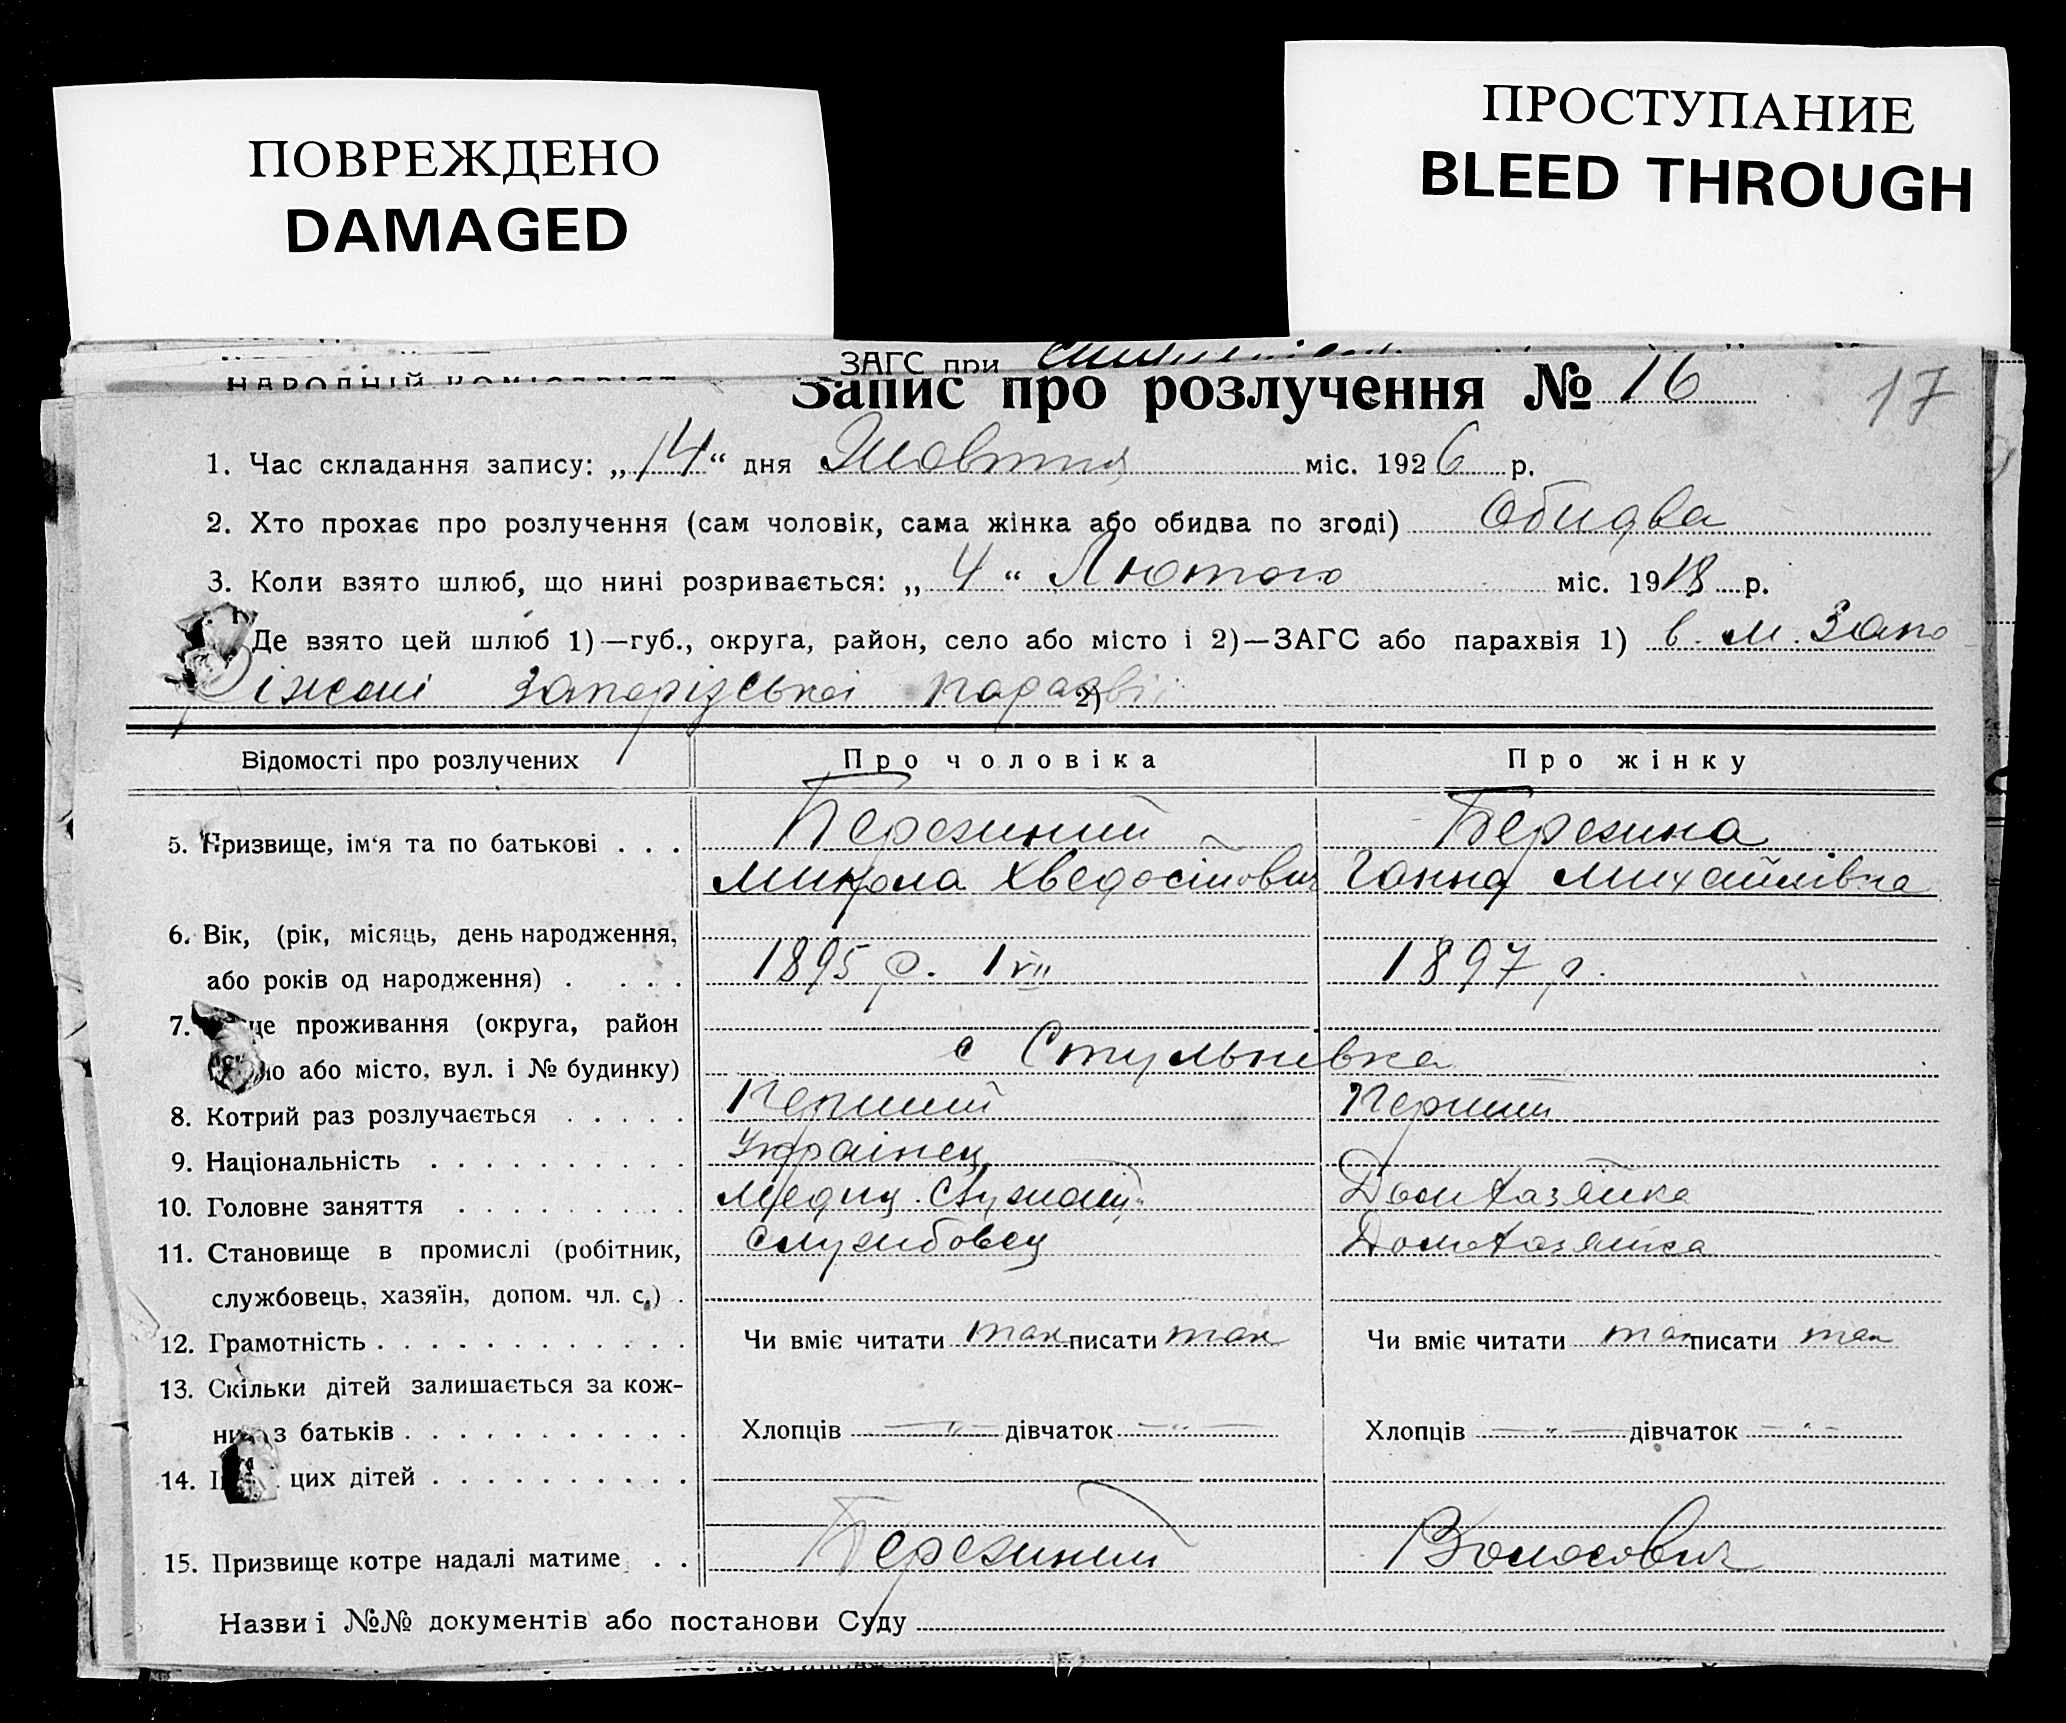 ПОВРЕЖДЕНО
DAMAGED
ПРОСТУПАНИЕ
BLEED THROUGH
ЗАГС при
Запис про розлучення № 16
17
1. Час складання запису: „14“ дня Жовтня міс. 1926 р.
2. Хто прохає про розлучення (сам чоловік, сама жінка або обидва по згоді) Обидва
3. Коли взято шлюб, що нині розривається: „4“ Лютого міс. 1918 р.
Де взято цей шлюб 1)—губ., округа, район, село або місто і 2)—ЗАГС або парахвія 1) в. м. Запо
ріжжі запорізської парахвії 2)
Відомості про розлучених Про чоловіка Про жінку
Березиний Березина
5. Призвище, ім‘я та по батькові . . .
Микола Хведосійович Ганна Михайлівна
6. Вік, (рік, місяць, день народження,
або років од народження) . . . . 1895 р. 1 VII 1897 р.
7. це проживання (округа, район
ло або місто, вул. і № будинку) с Стульневка
8. Котрий раз розлучається . . . . . Перший Перший
9. Національність . . . . . . . . . . Українец
10. Головне заняття . . . . . . . . . Медиц. Служащ. Домхазяйка
11. Становище в промислі (робітник, службовец Домохазяйка
службовець, хазяїн, допом. чл. с.) .
12. Грамотність . . . . . . . . . . . . Чи вміє читати так писати так Чи вміє читати так писати так
13. Скільки дітей залишається за кож-
ним з батьків . . . . . . . . . . . Хлопців — „ — дівчаток — „ — Хлопців — „ — дівчаток — „ —
14. І цих дітей . . . . . . . . . .
15. Призвище котре надалі матиме . . Березиний Волосович
Назви і №№ документів або постанови Суду